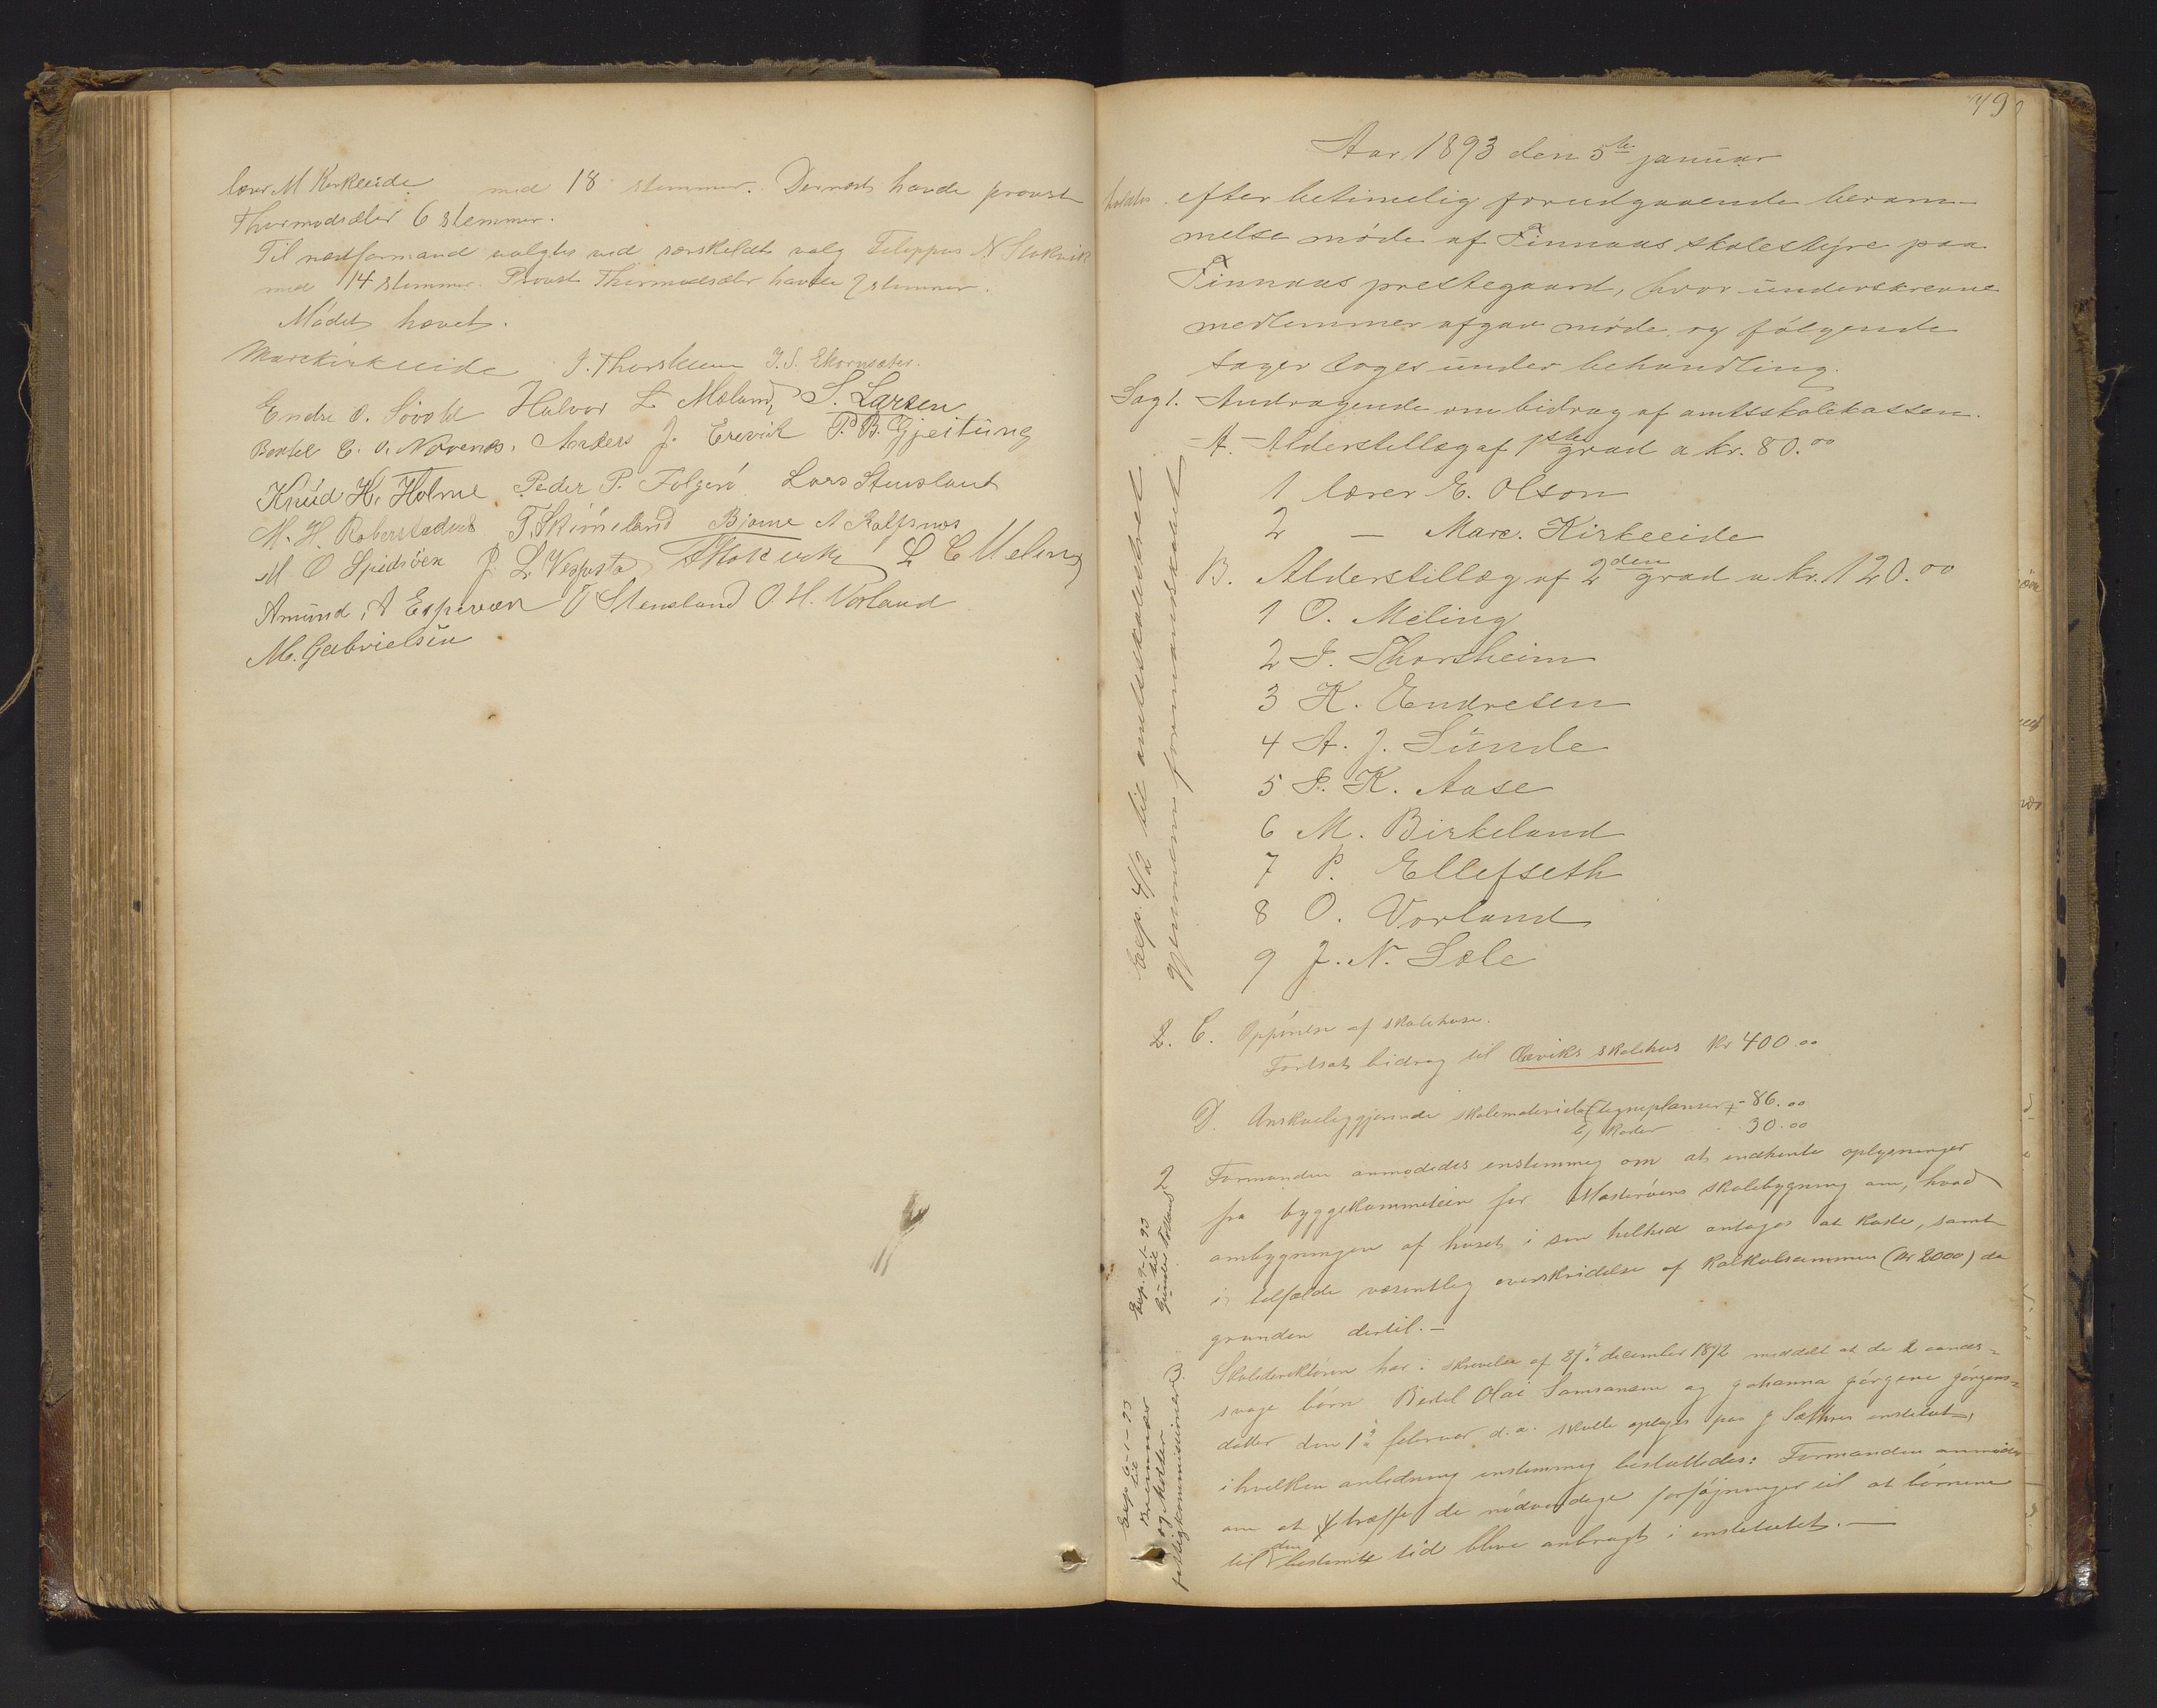 lærer M Kirkeeide med 18 stemmer. Dernæst havde provst
Thormodsæter 6 stemmer.
Til næstformand valgtes ved særskildt valg Filippus N Stokvik
med 14 stemmer. Provst Thormodsæter havde 7 stemmer.
Mødet hævet.
Marc Kirkeeide J. Thorsheim J. S. Ekornsæter.
Endre O. Halvor L. Mæland, S. Larsen
Bertel E. O. Novenæs. Anders J. Erevik P. B. Gjeitung
Knud H. Holme Peder P. Folgerø Lars Stensland
M. H. Roberstadnes T. Skimeland Bjarne A Rolfsnæs
M O Spidsöen J. L. Vespestad FStokvik L E Meling
Amund A Espevær T Stensland O. H. Vorland
M. Gabrielsen
79
Aar 1893 den 5te januar
holdtes efter betimelig forudgaaende beram-
melse møde af Finnaas skolestyre paa
Finnaas prestegaard, hvor underskrevne
medlemmer afgav møde og følgende
sager toges under behandling.
Sag 1. Andragende om bidrag af amtsskolekassen.
A. Alderstillæg af 1ste grad a kr. 80.00
1 lærer E. Olson
2 — Marc. Kirkeeide
B. Alderstillæg af 2den grad a kr. 120.00
1 O. Meling
2 J. Thorsheim
3 K. Endresen
4 A. J. Sunde
5 J. K. Aase
6 M. Birkeland
7 P. Ellefseth
8 O. Vorland
9 J. N. Sæle
Exp. 4/2 til amtsskolestyret
gjennem formandskabet
2. C. Opførelse af skolehuse.
Fortsat bidrag til Æviks skolehus kr 400.00
D. Anskueliggjørende skolemateriel (tegneplanser) - 86.00
b) Karter 30.00
2 Formanden anmodedes enstemmig om at indhente oplysninger
fra byggekommiteen for Mosterøens skolebygning om, hvad
ombygningen af huset i sin helhed antages at koste, samt
i tilfælde væsentlig overskridelse af kalkulsummen (kr 2000) da
grunden dertil. —
Exp. 9-1-93
til
Gunder Tolland
3 Skoledirektøren har i skrivelse af 27. december 1892 meddelt at de 2 aands-
svage børn Bertel Olai Samsonsen og Johanna Jørgine Jørgens-
datter den 1ste februar d.a. skulle optages paa J Sæthres institut,
i hvilken anledning enstemmig besluttedes: Formanden anmodes
om at træffe de nødvendige forføjninger til at børnene
til den bestemte tid blive anbragt i institutet. —
Exp. 6-1-93
til
Bremnæs
og Moster
fattigkommissioner